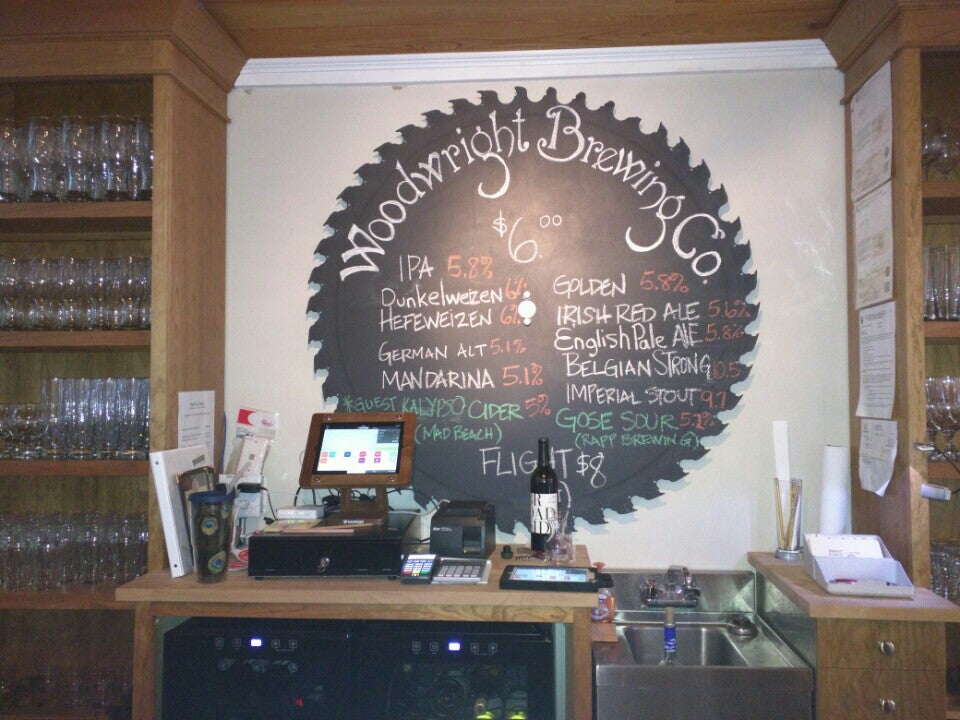 Woodwright Brewing Co.
$6.00
IPA 5.8%
Dunkelweizen 6%
HEFEWEIZEN 6%
GERMAN ALT 5.1%
MANDARINA 5.1%
*GUEST KALYPSO CIDER 5%
(MAD BEACH)
GOLDEN 5.8%
IRISH RED ALE 5.6%
English Pale ALE 5.8%
BELGIAN STRONG 10.5
IMPERIAL STOUT 9.7
GOSE SOUR 5.1%
(RAPP BREWING)
FLIGHT $8